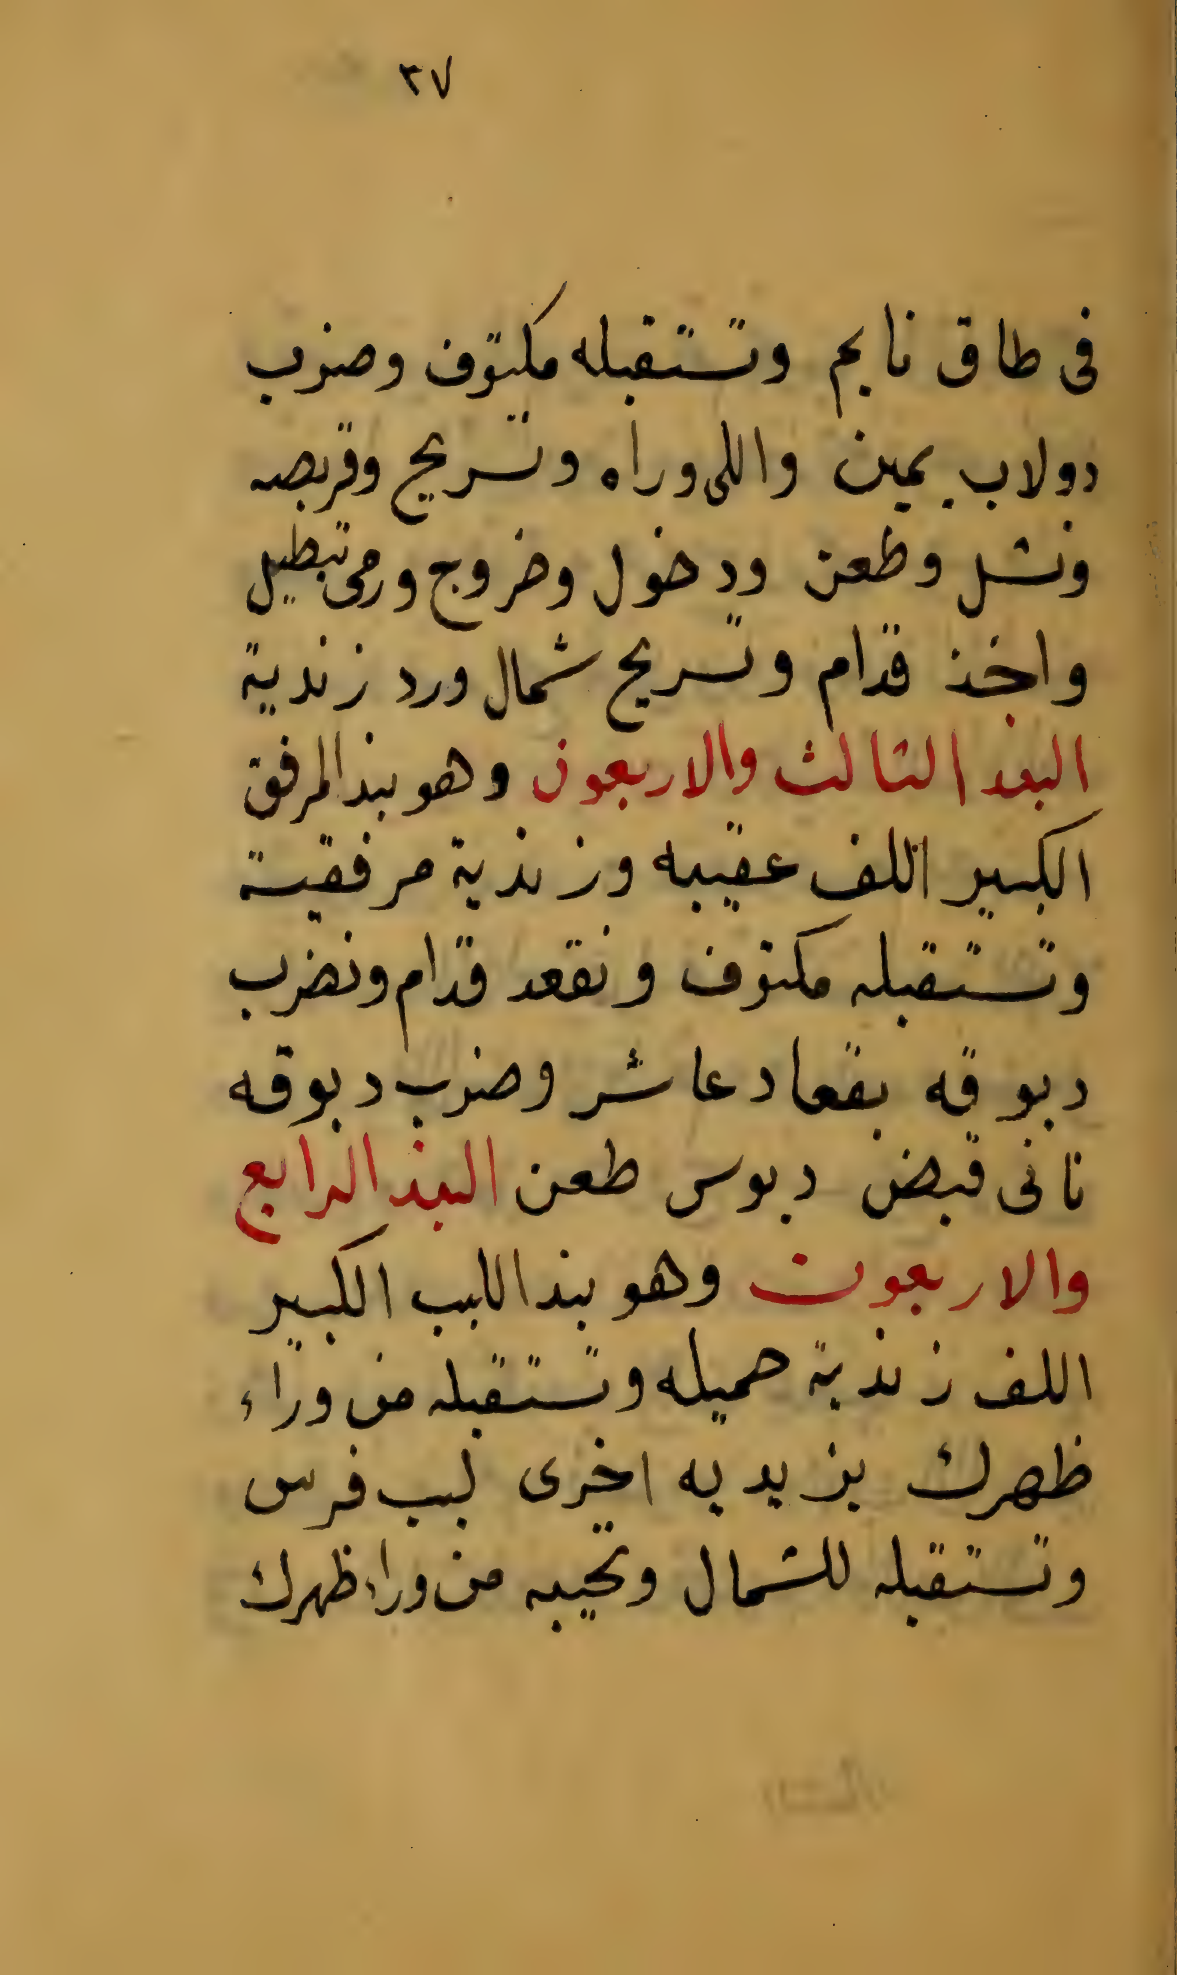 ٣٧
فى طاق نايم وتستقبله مكتوف وضرب
دولاب يمين واللى وراه وتسريح وقربصه
ونشل وطعن ودخول وخروج ورمى تبطيل
واخذ قدام وتسريح شمال ورد زندية
البند الثالث والاربعون وهو بند المرفق
الكبير اللف عقيبه وزندية مرفقية
وتستقبله مكتوف ونقعد قدام ونضرب
دبوقه بقعاد عاشر وضرب دبوقه
ثانى قبض دبوس طعن البند الرابع
والاربعون وهو بند اللبب الكبير
اللف زندية حميله وتستقبله من وراء
ظهرك بزيديه اخرى لبب فرس
وتستقبله للشمال وتجيبه من وراء ظهرك